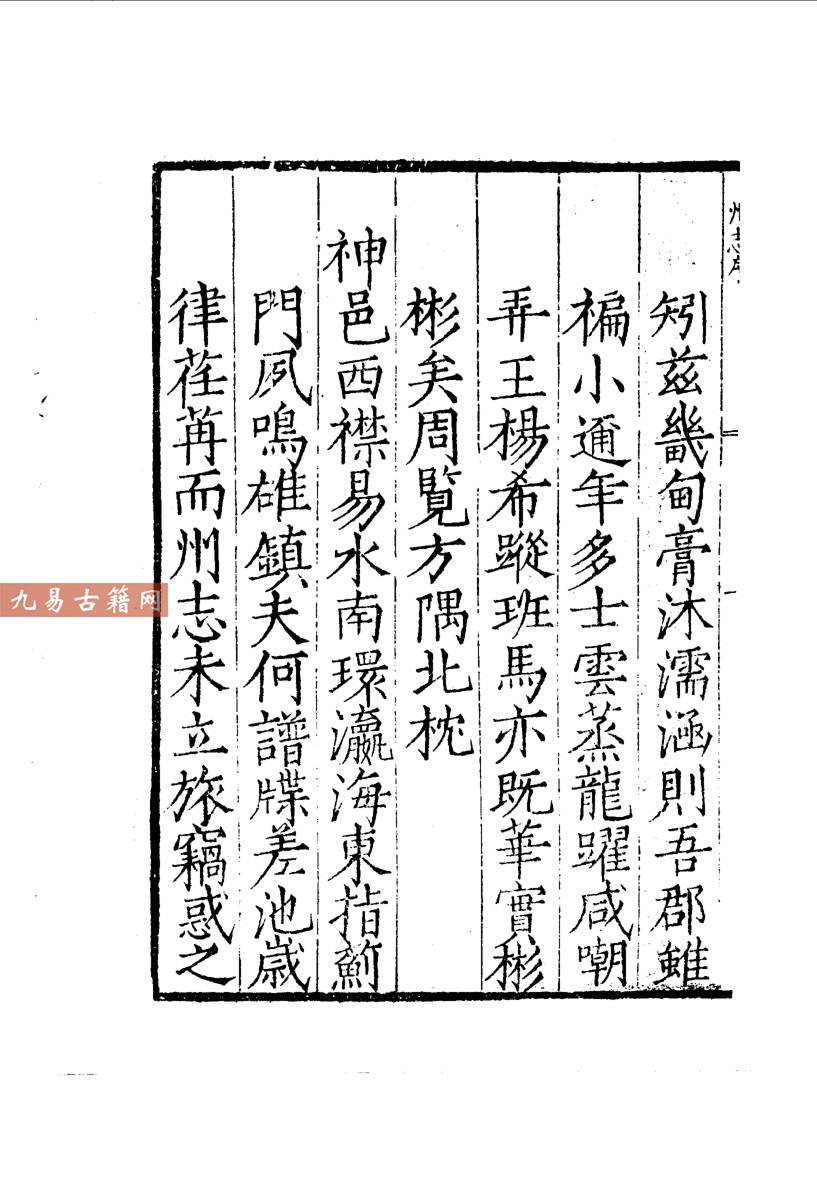 州志序
矧茲畿甸膏沐濡涵則吾郡雖
褊小邇年多士雲蒸龍躍咸嘲
弄王楊希蹤班馬亦既華實彬
彬矣周覽方隅北枕
神邑西襟易水南環瀛海東指薊
門夙鳴雄鎮夫何譜牒差池歲
律荏苒而州志未立旅竊惑之
九易古籍网